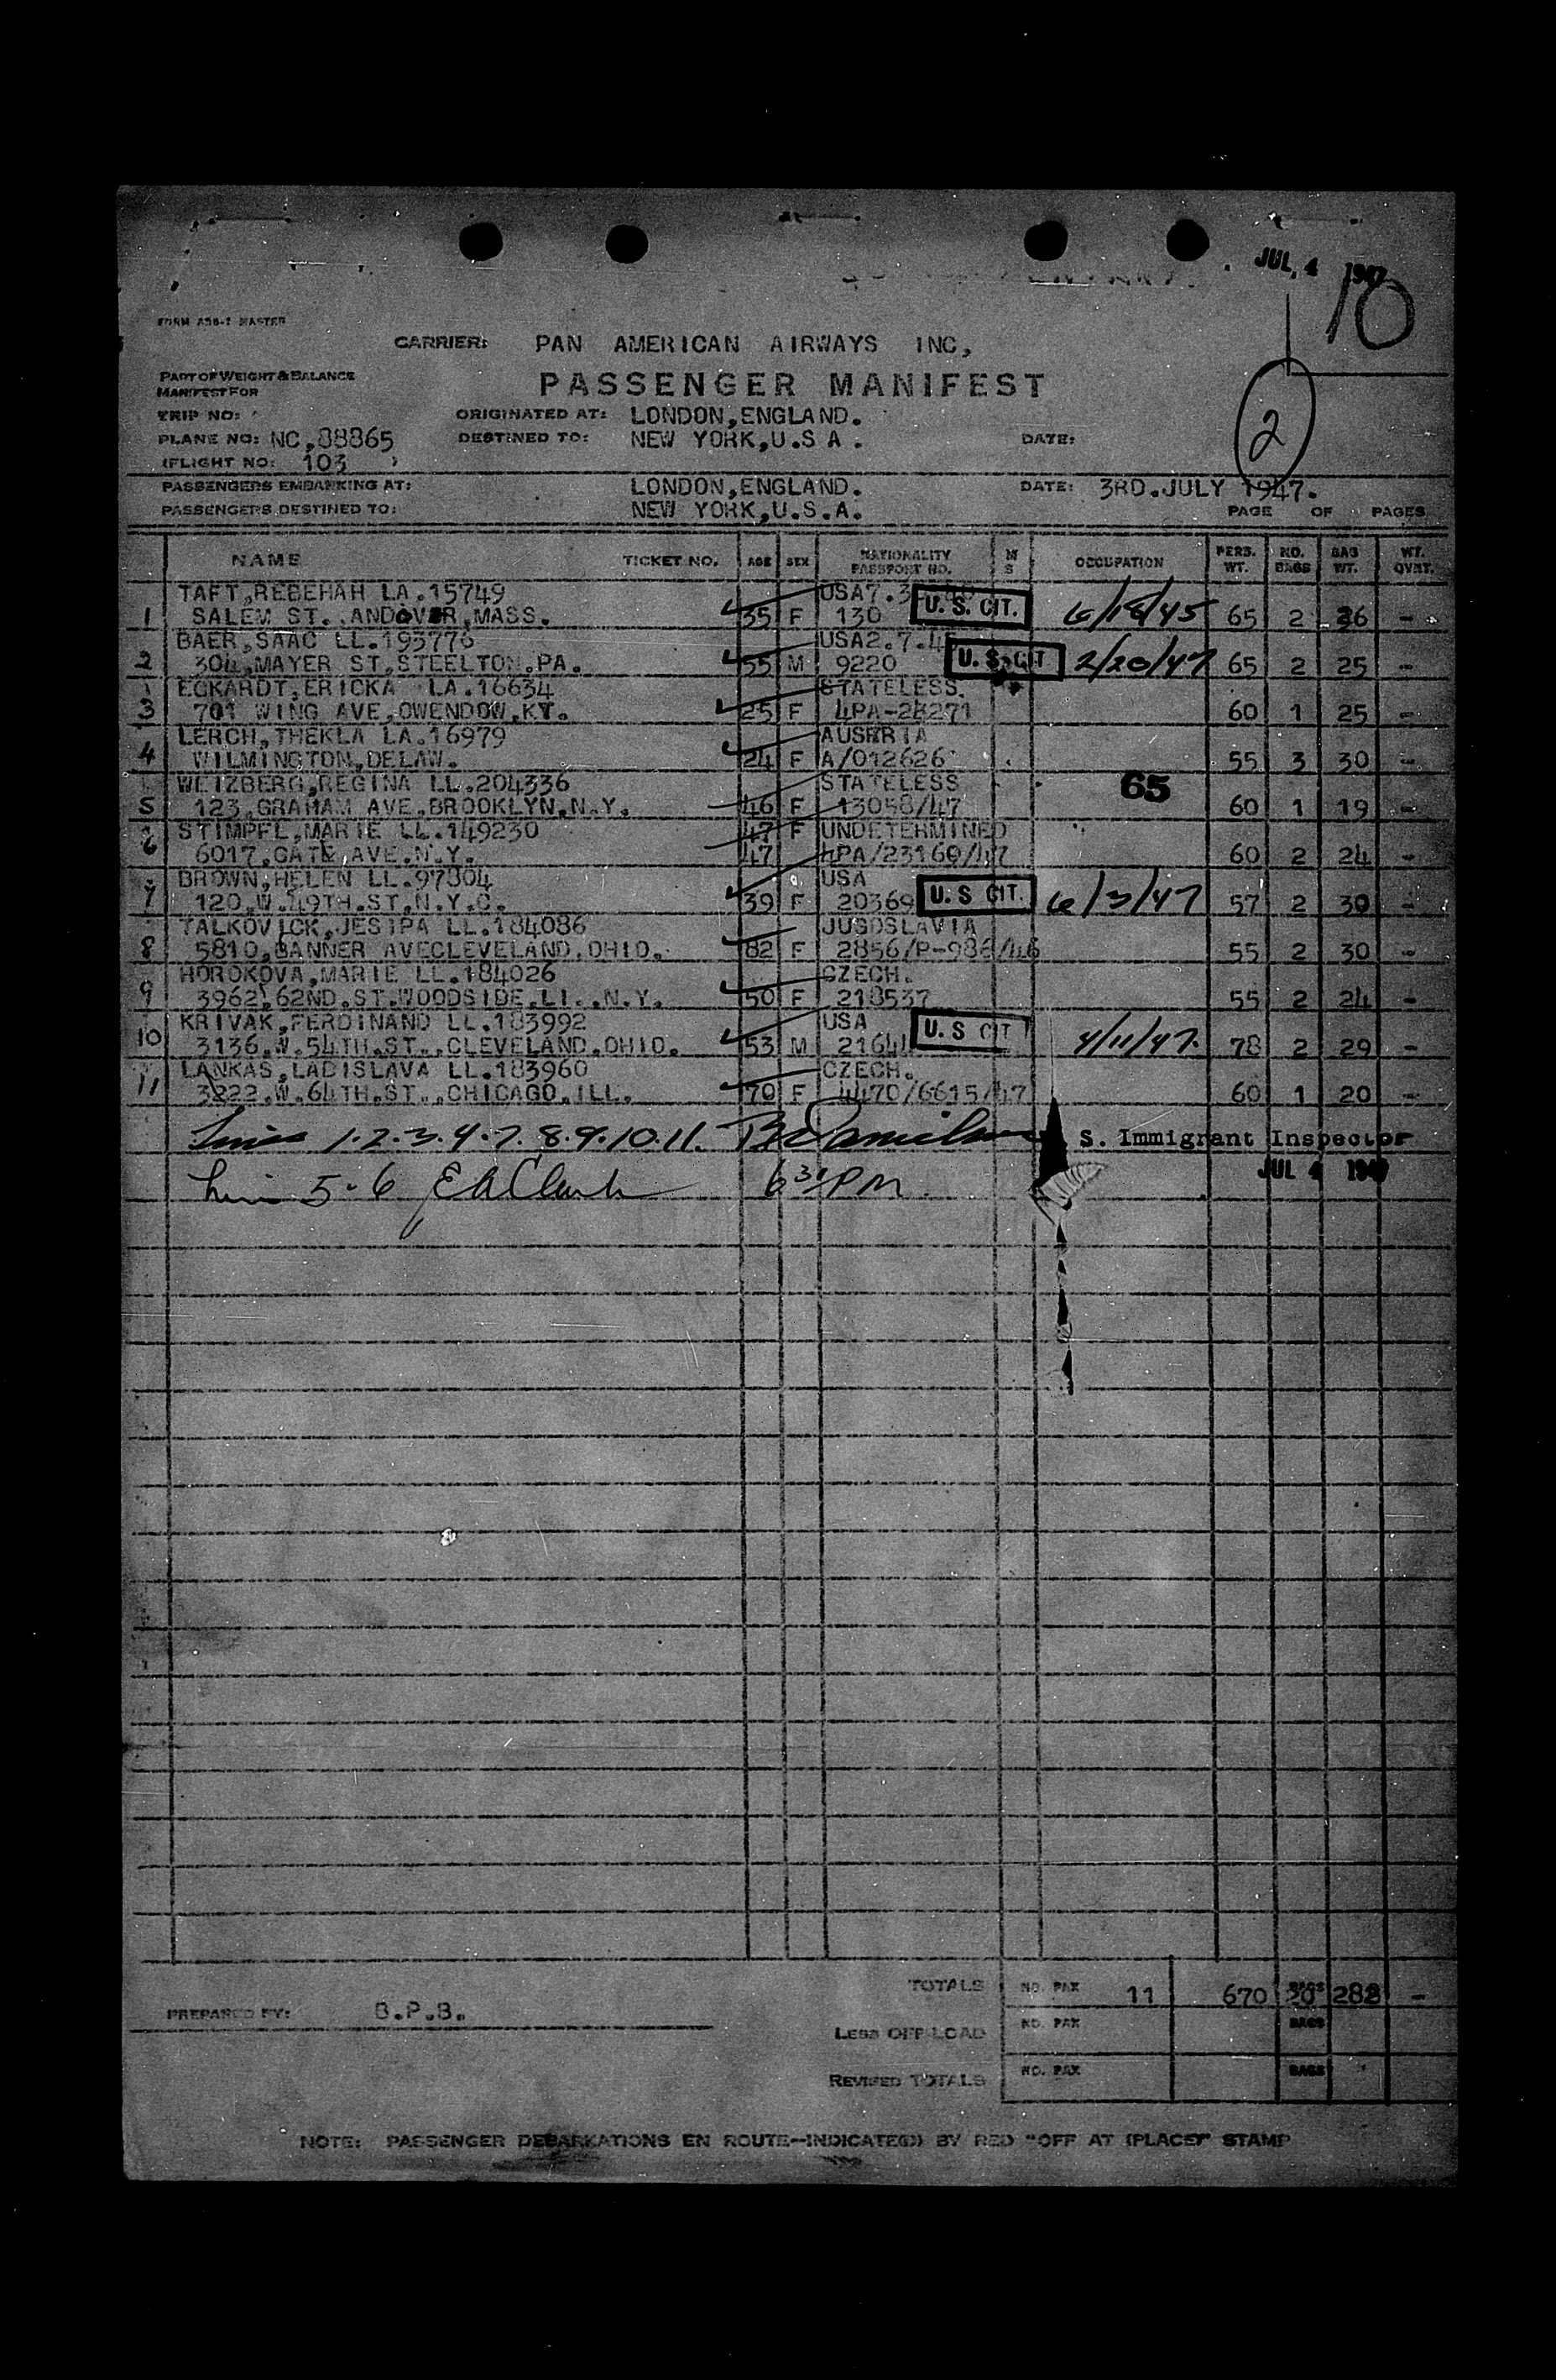 JUL 4 1947
10
FORM
CARRIER: PAN AMERICAN AIRWAYS INC,
PART OF WEIGHT & BALANCE
MANIFEST FOR
PASSENGER MANIFEST
TRIP NO: ORIGINATED AT: LONDON,ENGLAND.
2
PLANE NO: NC,88865 DESTINED TO: NEW YORK,U.S A. DATE:
(FLIGHT NO: 103 )
PASSENGERS EMBARKING AT: LONDON,ENGLAND. DATE: 3RD.JULY 1947.
PASSENGERS DESTINED TO: NEW YORK,U.S.A. PAGE OF PAGES
NAME TICKET NO. AGE SEX NATIONALITY PASSPORT NO. M S OCCUPATION PERS. WT. NO. BAGS BAG WT. WT. OVRT.
TAFT,REBEHAH LA.15749 USA7.
1 SALEM ST..ANDOVER,MASS. 35 F 130 U. S. CIT. 6/18/45 65 2 36 -
BAER,SAAC LL.193776 USA2.7.4
2 304,MAYER ST,STEELTON,PA. 55 M 9220 U. S. CIT 2/20/47 65 2 25 -
ECKARDT,ERICKA LA.16634 STATELESS.
3 701 WING AVE,OWENDOW,KY. 25 F 4PA-28271 60 1 25 -
LERCH,THEKLA LA.16979 AUSRRIA
4 WILMINGTON,DELAW. 24 F A/012626 55 3 30 -
WEIZBERG,REGINA LL.204336 STATELESS 65
5 123,GRAHAM AVE.BROOKLYN,N.Y. 46 F 13058/47 60 1 19 -
STIMPFL,MARIE LL.149230 47 F UNDETERMINED
6 6017,GATE AVE.N.Y. 47 4PA/23160/47 60 2 24 -
BROWN,HELEN LL.97804 USA
7 120.W.49TH.ST,N.Y.C. 39 F 20369 U. S CIT. 6/3/47 57 2 30 -
TALKOVICK,JESIPA LL.184086 JUGOSLAVIA
8 5810,BANNER AVECLEVELAND.OHIO. 82 F 2856/P-986/46 55 2 30 -
HOROKOVA,MARIE LL.184026 CZECH.
9 3962,62ND.ST.WOODSIDE.LI..N.Y. 50 F 218537 55 2 24 -
KRIVAK,FERDINAND LL.183992 USA
10 3136.W.54TH.ST..CLEVELAND.OHIO. 53 M 2164 U. S CIT 4/11/47. 78 2 29 -
LANKAS,LADISLAVA LL.183960 CZECH.
11 3222.W.64TH.ST..CHICAGO.ILL. 70 F 4470/6615/47 60 1 20 -
Lines 1.2.3.4.7.8.9.10.11. S. Immigrant Inspector
JUL 4 1947
Line 5-6 E A Clark 6 30 PM
TOTALS NO. PAX 11 670 BAGS 20 288 -
PREPARED BY: B.P.B.
LESS OFF LOAD NO. PAX BAGS
REVISED TOTALS NO. PAX BAGS
NOTE: PASSENGER DEBARKATIONS EN ROUTE—INDICATE(D) BY RED "OFF AT (PLACE)" STAMP